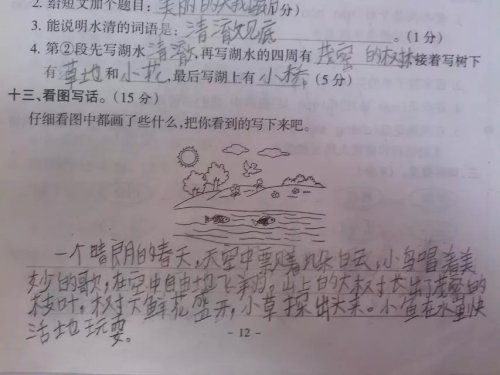 2. 给短文加个题目:美丽的大我 分)
3. 能说明水清的词语是:清澈见底。(1分)
4. 第②段先写湖水清澈,再写湖水的四周有茂密的树林接着写树下
有草地和小花,最后写湖上有小桥(5分)
十三、看图写话。(15分)
仔细看图中都画了些什么,把你看到的写下来吧。
一个晴朗的春天,天空中飘着几朵白云,小鸟唱着美
妙的歌,在空中自由地飞翔,山上的大树长出了茂密的
枝叶,树下鲜花盛开,小草探出大来。小鱼在水里快
活地玩耍。
- 12 -